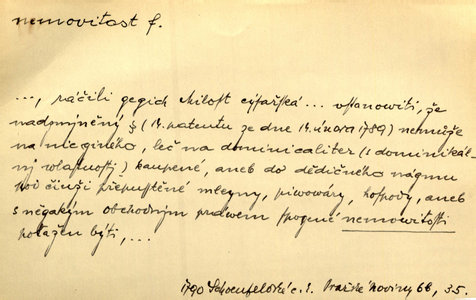 nemovitost f.
..., ráčili gegich Milost cýsařská ... ustanowiti, že
nadzmjněný § (14. patentu ze dne 14. února 1789) nemůže
na nic giného, leč na dominicaliter (s dominikál-
nj wlastnostj) kaupené, aneb do dědičného nágmu
pod činži přepusstěné mlegny, piwowáry, hospody, aneb
s něgakým obchodným prawem spogené nemowitosti
potažen býti, ...
1790 Schoenfeldské c. k. Pražské noviny 66, 35.